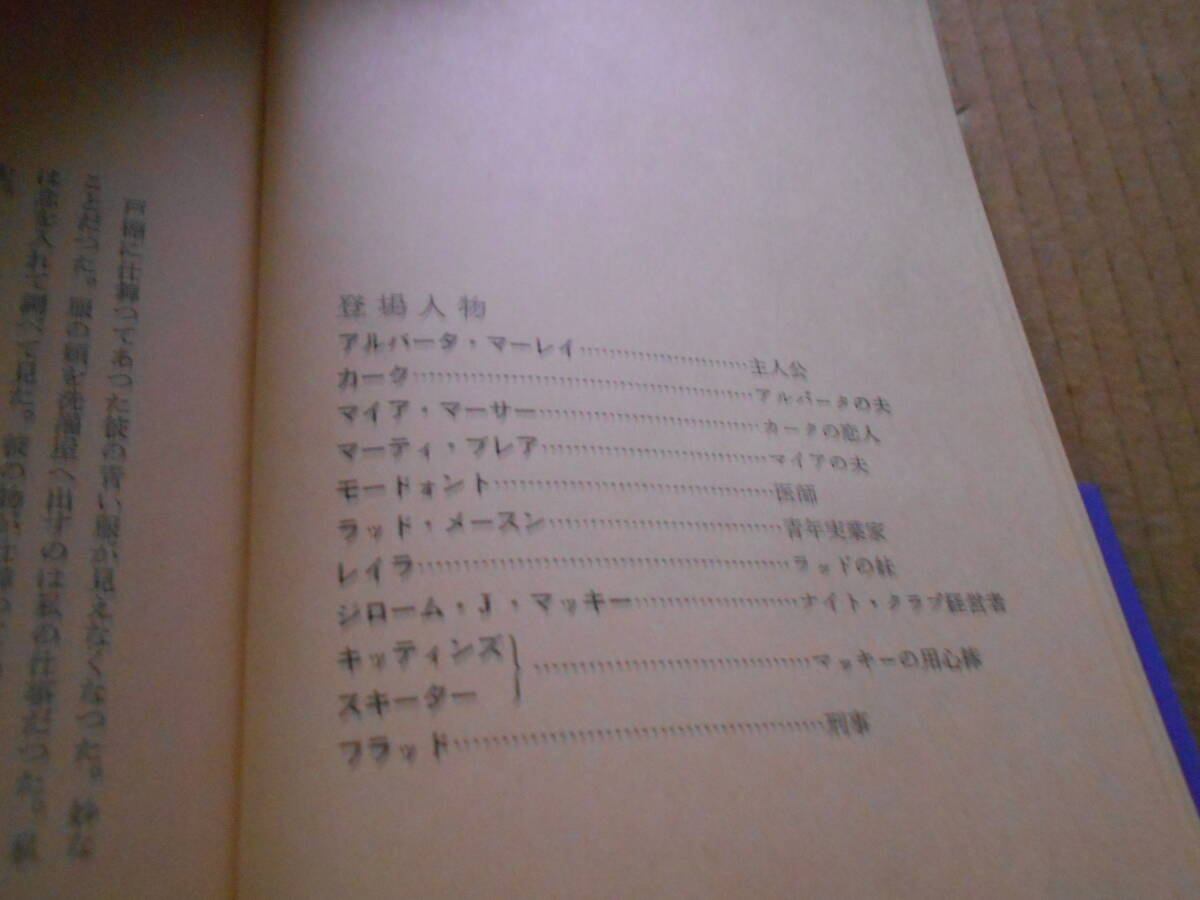 登場人物
アルバータ・マーレイ……………………主人公
カーク……………………………………アルバータの夫
マイア・マーサー…………………………カークの恋人
マーティ・ブレア…………………………マイアの夫
モードォント………………………………医師
ラッド・メースン…………………………青年実業家
レイラ………………………………………ラッドの妹
ジローム・J・マッキー…………………ナイト・クラブ経営者
キッティンズ
スキーター
}………………………………マッキーの用心棒
フラッド……………………………………刑事
戸棚に仕舞つてあつた彼の青い服が見えなくなつた。妙な
ことだつた。服の類を洗濯屋へ出すのは私の仕事だつた。私
は念を入れて調べて見た。彼の